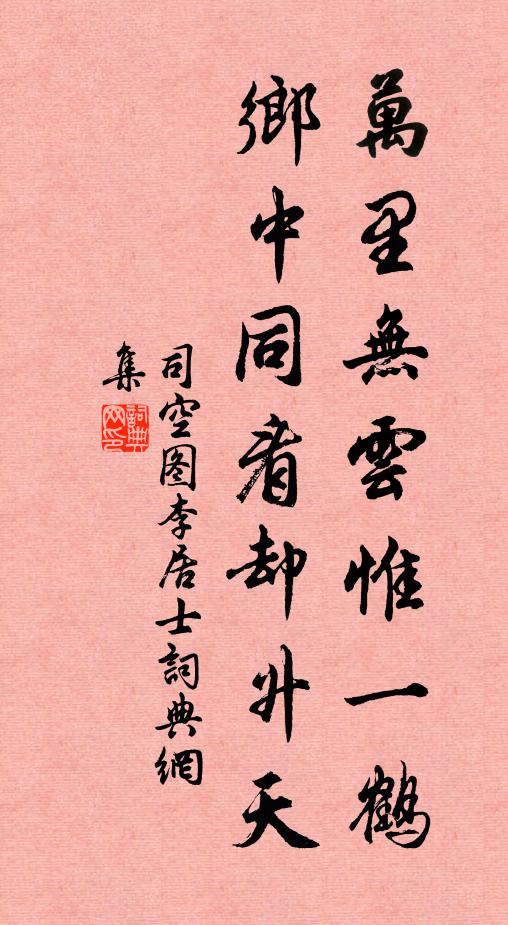 萬里無雲惟一鶴
鄉中同看却升天
司空图李居士詞典網
集
詞典网印